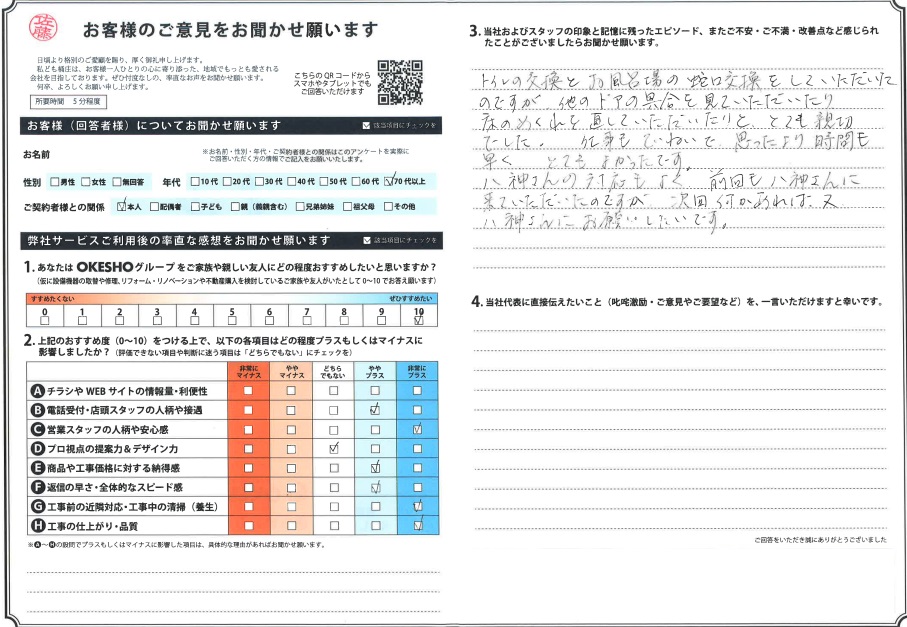 佐藤
お客様のご意見をお聞かせ願います
日頃より格別のご愛顧を賜り、厚く御礼申し上げます。
私ども桶庄は、お客様一人ひとりの心に寄り添った、地域でもっとも愛される
会社を目指しております。ぜひ忖度なしの、率直なお声をお聞かせ願います。
何卒、よろしくお願い申し上げます。
所要時間 5分程度
こちらのQRコードから
スマホやタブレットでも
ご回答いただけます
お客様（回答者様）についてお聞かせ願います
☑ 該当項目にチェックを
お名前
※お名前・性別・年代・ご契約者様との関係はこのアンケートを実際に
ご回答いただく方の情報でご記入をお願いいたします。
性別 □男性 □女性 □無回答 年代 □10代 □20代 □30代 □40代 □50代 □60代 ☑70代以上
ご契約者様との関係 ☑本人 □配偶者 □子ども □親（義親含む） □兄弟姉妹 □祖父母 □その他
弊社サービスご利用後の率直な感想をお聞かせ願います
☑ 該当項目にチェックを
1. あなたは OKESHOグループ をご家族や親しい友人にどの程度おすすめしたいと思いますか？
（仮に設備機器の取替や修理、リフォーム・リノベーションや不動産購入を検討しているご家族や友人がいたとして0〜10でお答え願います）
すすめたくない ぜひすすめたい
0 1 2 3 4 5 6 7 8 9 10
□ □ □ □ □ □ □ □ □ □ ☑
2. 上記のおすすめ度（0〜10）をつける上で、以下の各項目はどの程度プラスもしくはマイナスに
影響しましたか？（評価できない項目や判断に迷う項目は「どちらでもない」にチェックを）
非常に マイナス やや マイナス どちら でもない やや プラス 非常に プラス
A チラシやWEBサイトの情報量・利便性 □ □ □ □ □
B 電話受付・店頭スタッフの人柄や接遇 □ □ □ ☑ □
C 営業スタッフの人柄や安心感 □ □ □ □ ☑
D プロ視点の提案力＆デザイン力 □ □ ☑ □ □
E 商品や工事価格に対する納得感 □ □ □ ☑ □
F 返信の早さ・全体的なスピード感 □ □ □ ☑ □
G 工事前の近隣対応・工事中の清掃（養生） □ □ □ □ ☑
H 工事の仕上がり・品質 □ □ □ □ ☑
※A〜Hの設問でプラスもしくはマイナスに影響した項目は、具体的な理由があればお聞かせ願います。
3. 当社およびスタッフの印象と記憶に残ったエピソード、またご不安・ご不満・改善点など感じられ
たことがございましたらお聞かせ願います。
トイレの交換とお風呂場の蛇口交換をしていただいた
のですが 他のドアの具合を見ていただいたり
床のめくれを直していただいたりと、とても親切
でした。 仕事もていねいで 思ったより時間も
早く とてもよかったです。
八神さんの対応もよく 前回も八神さんに
来ていただいたのですが 次回何かあれば又
八神さんにお願いしたいです。
4. 当社代表に直接伝えたいこと（叱咤激励・ご意見やご要望など）を、一言いただけますと幸いです。
ご回答をいただき誠にありがとうございました